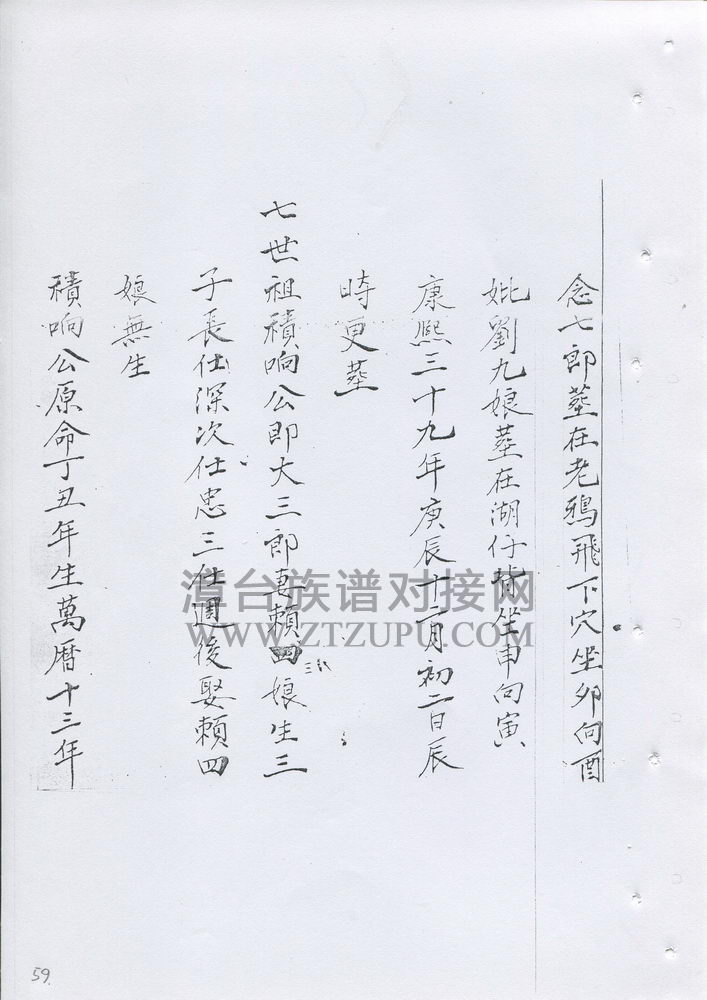 念七郎塟在老鴉飛下穴坐夘向酉
妣劉九娘塟在湖仔背坐申向寅
康熙三十九年庚辰十二月初二日辰
時更塟
七世祖積响公即大三郎妻賴四娘生三
三
子長仕深次仕忠三仕週後娶賴四
娘無生
積响公原命丁丑年生萬曆十三年
漳台族谱对接网
WWW.ZTZUPU.COM
59